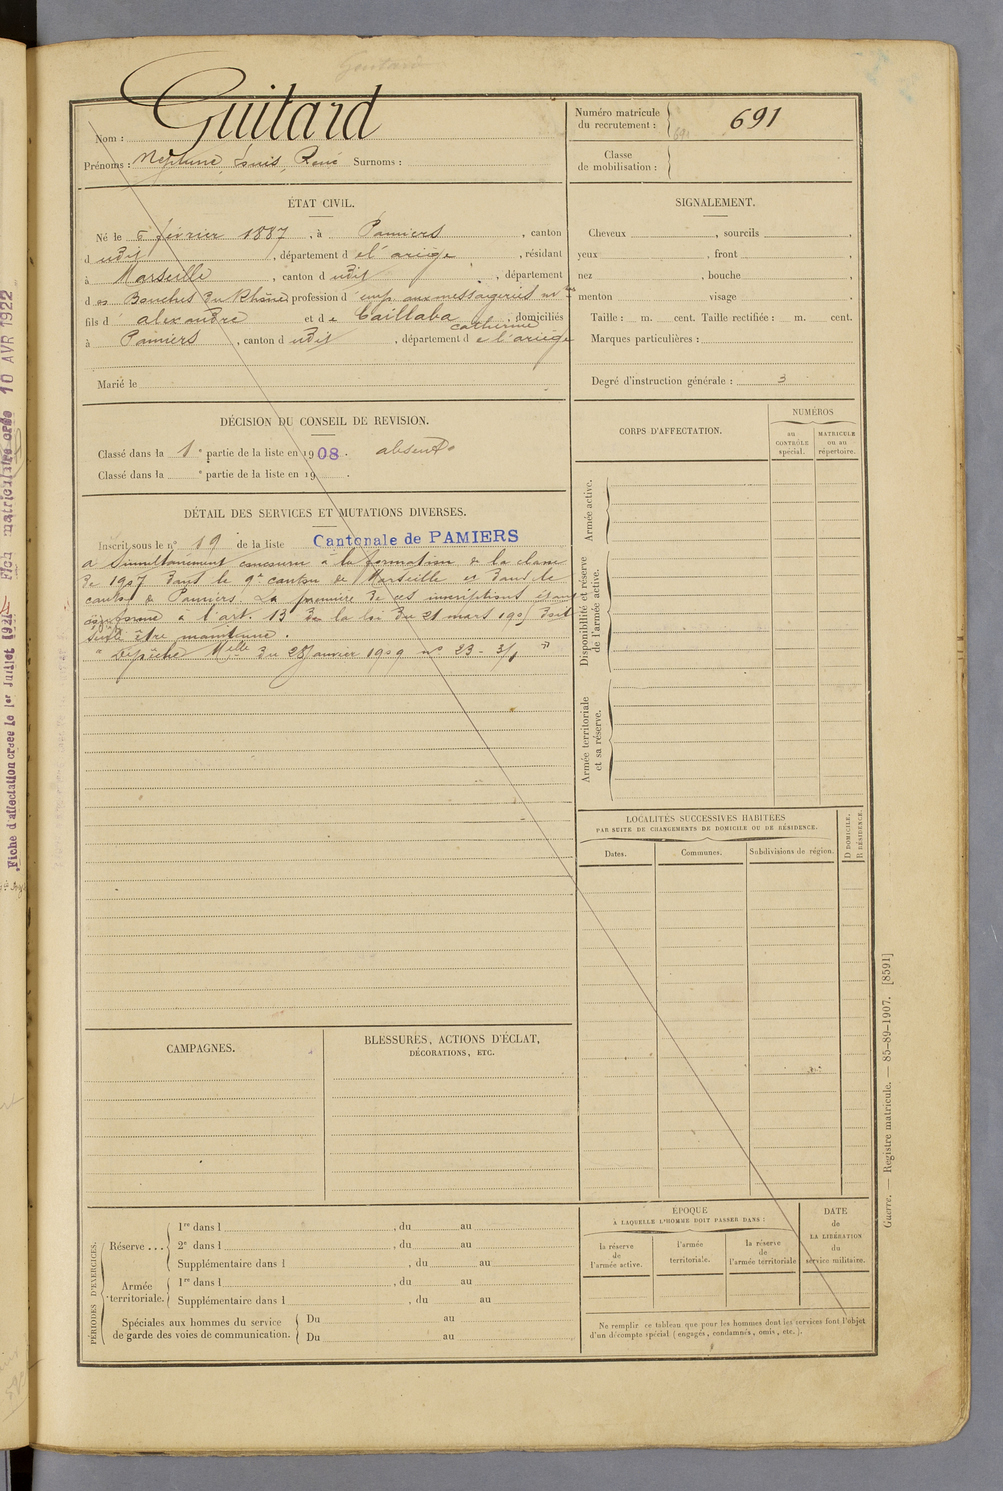 Guitard
Nom : Guitard
Prénoms : Neptune, Louis, René Surnoms :
Numéro matricule du recrutement : 691
691
Classe de mobilisation :
ÉTAT CIVIL.
Né le 6 février 1887, à Pamiers, canton
d udit, département d e l'ariège, résidant
à Marseille, canton d udit, département
d es Bouches du Rhône, profession d' emp. aux messageries mmes
fils d' alexandre et d e Caillaba catherine, domiciliés
à Pamiers, canton d udit, département d e l'ariège
Marié le
SIGNALEMENT.
Cheveux , sourcils ,
yeux , front ,
nez , bouche ,
menton visage .
Taille : m. cent. Taille rectifiée : m. cent.
Marques particulières :
Degré d'instruction générale : 3
DÉCISION DU CONSEIL DE REVISION.
Classé dans la 1e partie de la liste en 1908. absent
Classé dans la e partie de la liste en 19 .
DÉTAIL DES SERVICES ET MUTATIONS DIVERSES.
Inscrit sous le n° 19 de la liste Cantonale de PAMIERS
a simultanément concouru à la formation de la classe
de 1907 dans le 9e canton de Marseille et dans le
canton de Pamiers. La première de ces inscriptions étant
conforme à l'art. 13 de la loi du 21 mars 1905 doit
seule être maintenue.
Dépêche Mlle du 28 Janvier 1909 no 23-3/1
CORPS D'AFFECTATION.
NUMÉROS
au CONTRÔLE spécial.
MATRICULE ou au répertoire.
Armée active.
Disponibilité et réserve de l'armée active.
Armée territoriale et sa réserve.
LOCALITÉS SUCCESSIVES HABITÉES
PAR SUITE DE CHANGEMENTS DE DOMICILE OU DE RÉSIDENCE.
Dates.
Communes.
Subdivisions de région.
D DOMICILE.
R RÉSIDENCE.
CAMPAGNES.
BLESSURES, ACTIONS D'ÉCLAT,
DÉCORATIONS, ETC.
PÉRIODES D'EXERCICES.
Réserve ...
1re dans l , du au
2e dans l , du au
Supplémentaire dans l , du au
Armée territoriale.
1re dans l , du au
Supplémentaire dans l , du au
Spéciales aux hommes du service de garde des voies de communication.
Du au
Du au
ÉPOQUE
À LAQUELLE L'HOMME DOIT PASSER DANS :
la réserve de l'armée active.
l'armée territoriale.
la réserve de l'armée territoriale
DATE de LA LIBÉRATION du service militaire.
Ne remplir ce tableau que pour les hommes dont les services font l'objet
d'un décompte spécial (engagés, condamnés, omis, etc.).
Guerre. — Registre matricule. — 85-89-1907. [8591]
Fiche d'affectation créée le 1er Juillet 1921
Fich matriculaire créée 10 AVR 1922